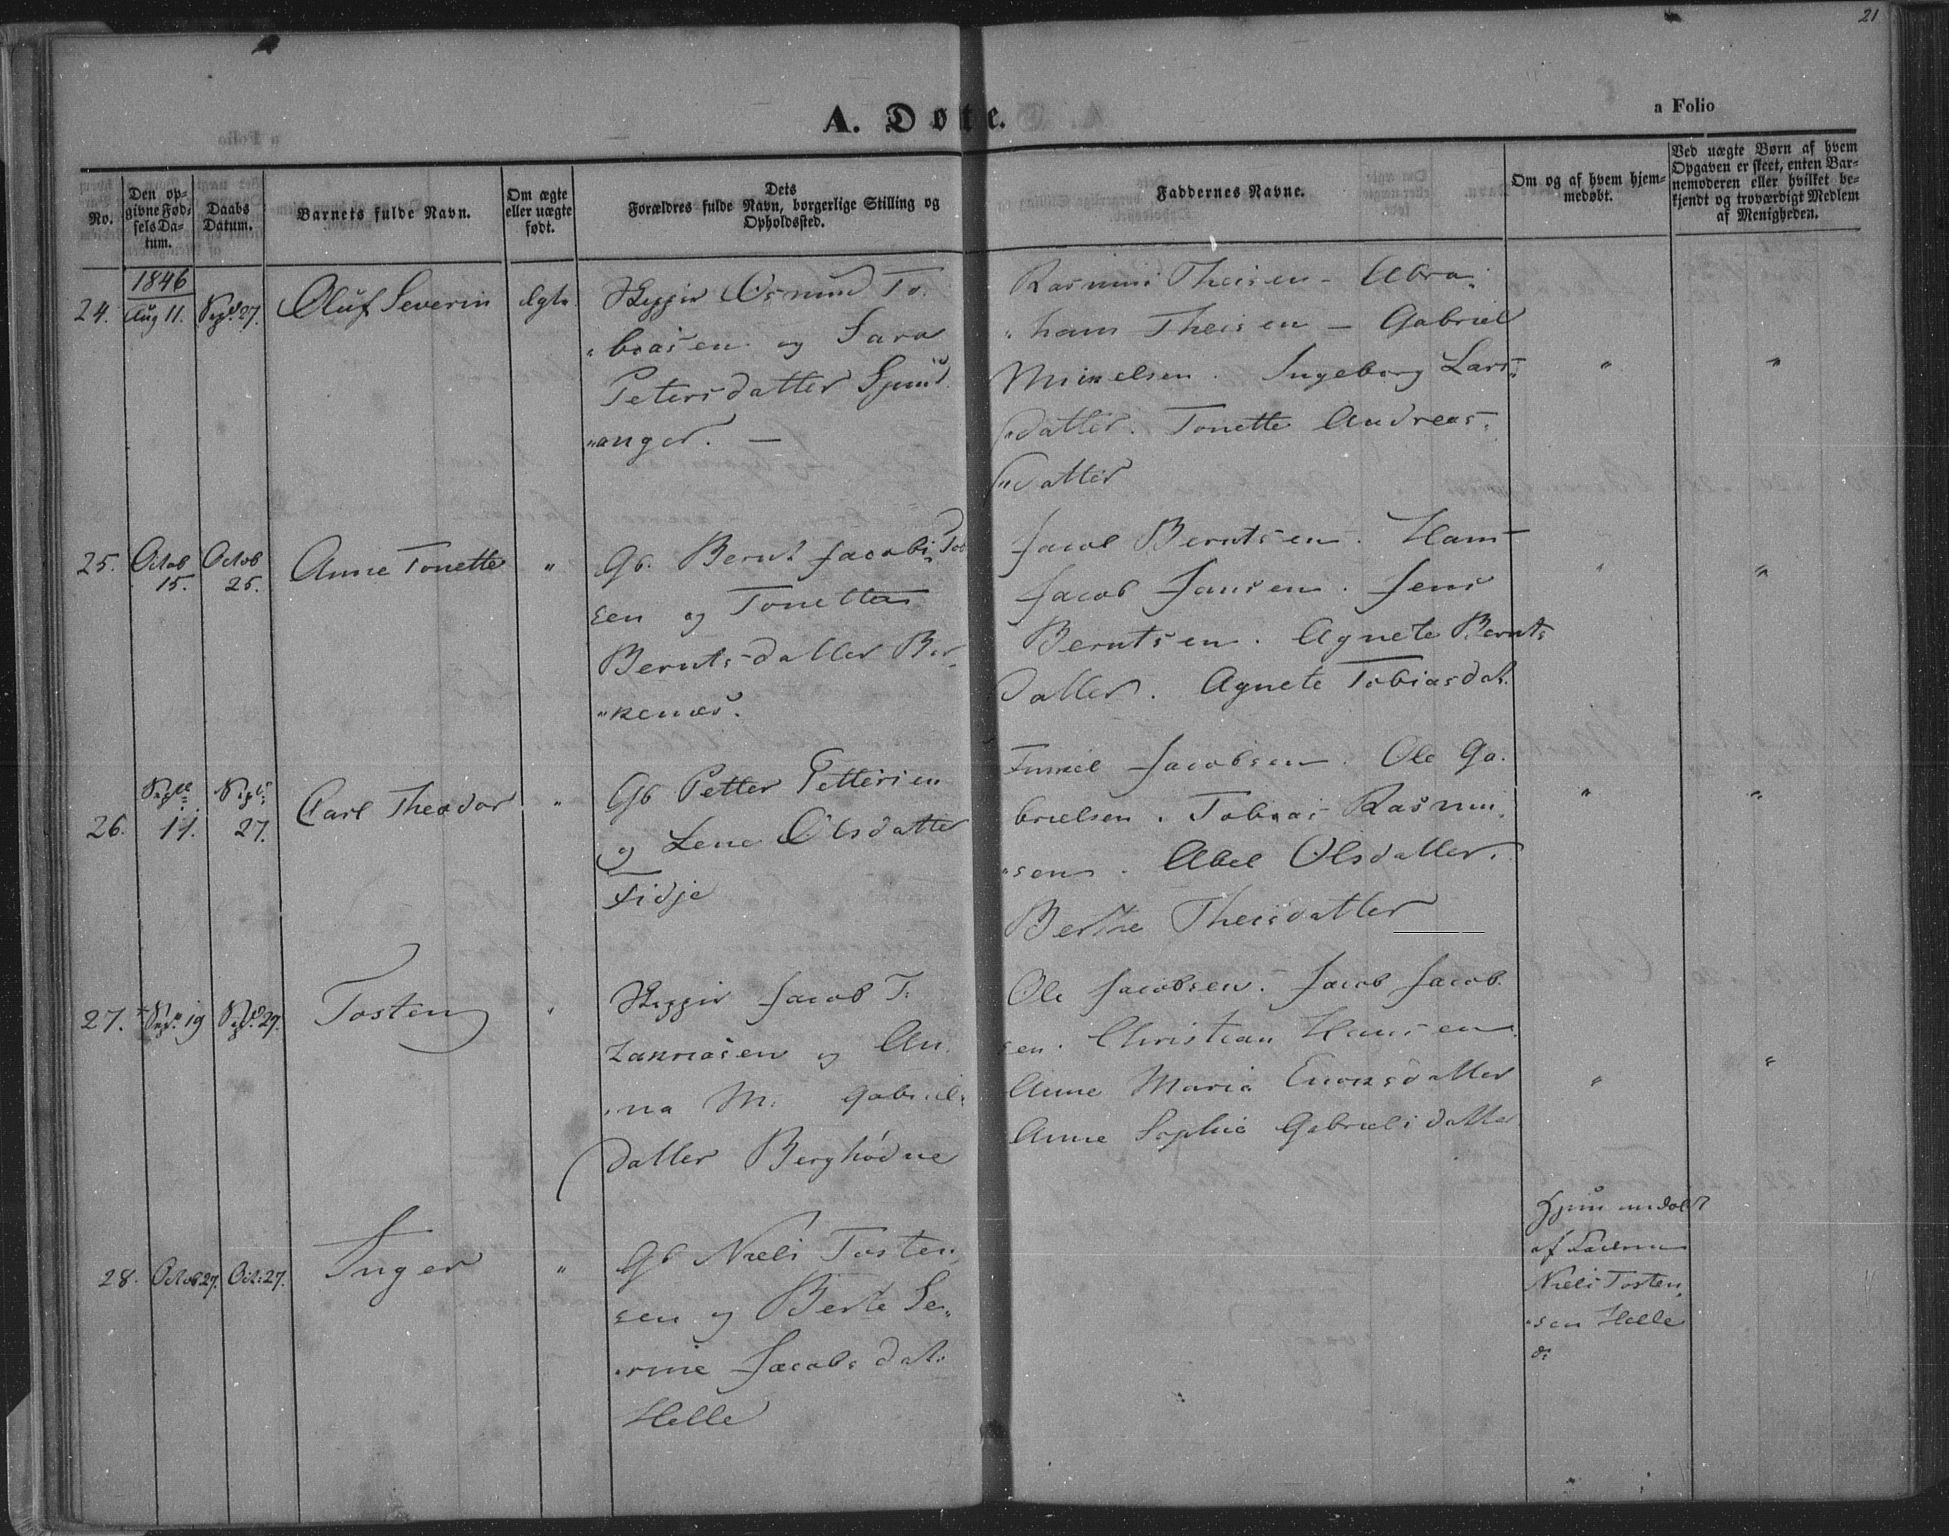 21
A. Døte.
a Folio
No.
Den op-
givne Fød-
sels Da-
tum.
Daabs
Datum.
Barnets fulde Navn.
Om ægte
eller uægte
født.
Dets
Forældres fulde Navn, borgerlige Stilling og
Opholdssted.
Faddernes Navne.
Om og af hvem hjem-
medøbt.
Ved uægte Børn af hvem
Opgaven er skeet, enten Bar-
nemoderen eller hvilket be-
kjendt og troværdigt Medlem
af Menigheden.
1846
24. Aug 11. Sept. 27. Oluf Severin Ægte
Skipper Osmund To-
biasen og Sara
Petersdatter
anger. —
Rasmus Theisen - Abra-
ham Theisen - Gabriel
Mikelsen. Ingeborg Lars-
datter. Tonette Andreas-
datter
25. Octob 15. Octob 25. Anne Tonette "
Gb. Bernt Jacob
sen og Tonette
Berntsdatter Bir-
kenæs.
Jacob Berntsen. Hans
Jacob Jansen. Jens
Berntsen. Agnete Bernts
datter. Agnete Tobiasdat.
26. Septb 11. Septb 27. Carl Theodor "
Gb Petter Pettersen
og Lene Olsdatter
Fidje
Jacobsen. Ole Ga-
brielsen. Tobias Rasmu-
sen. Abel Olsdatter.
Berthe Theisdatter
27. Sept. 19 Sept. 27. Tosten "
Skipper Jacob T.
Zakriasen og An-
na M. Gabriels
datter Berghødne
Ole Jacobsen. Jacob Jacob-
sen. Christian Hansen
Anne Maria Enoksdatter
Anne Sophie Gabrielsdatter
28. Octob 27. Oct. 27. Inger "
Gb Niels Tosten
sen og Berte Se-
rine Jacobsdat.
Helle
Hjemmedøbt
af Faderen
Niels Tosten-
sen Helle